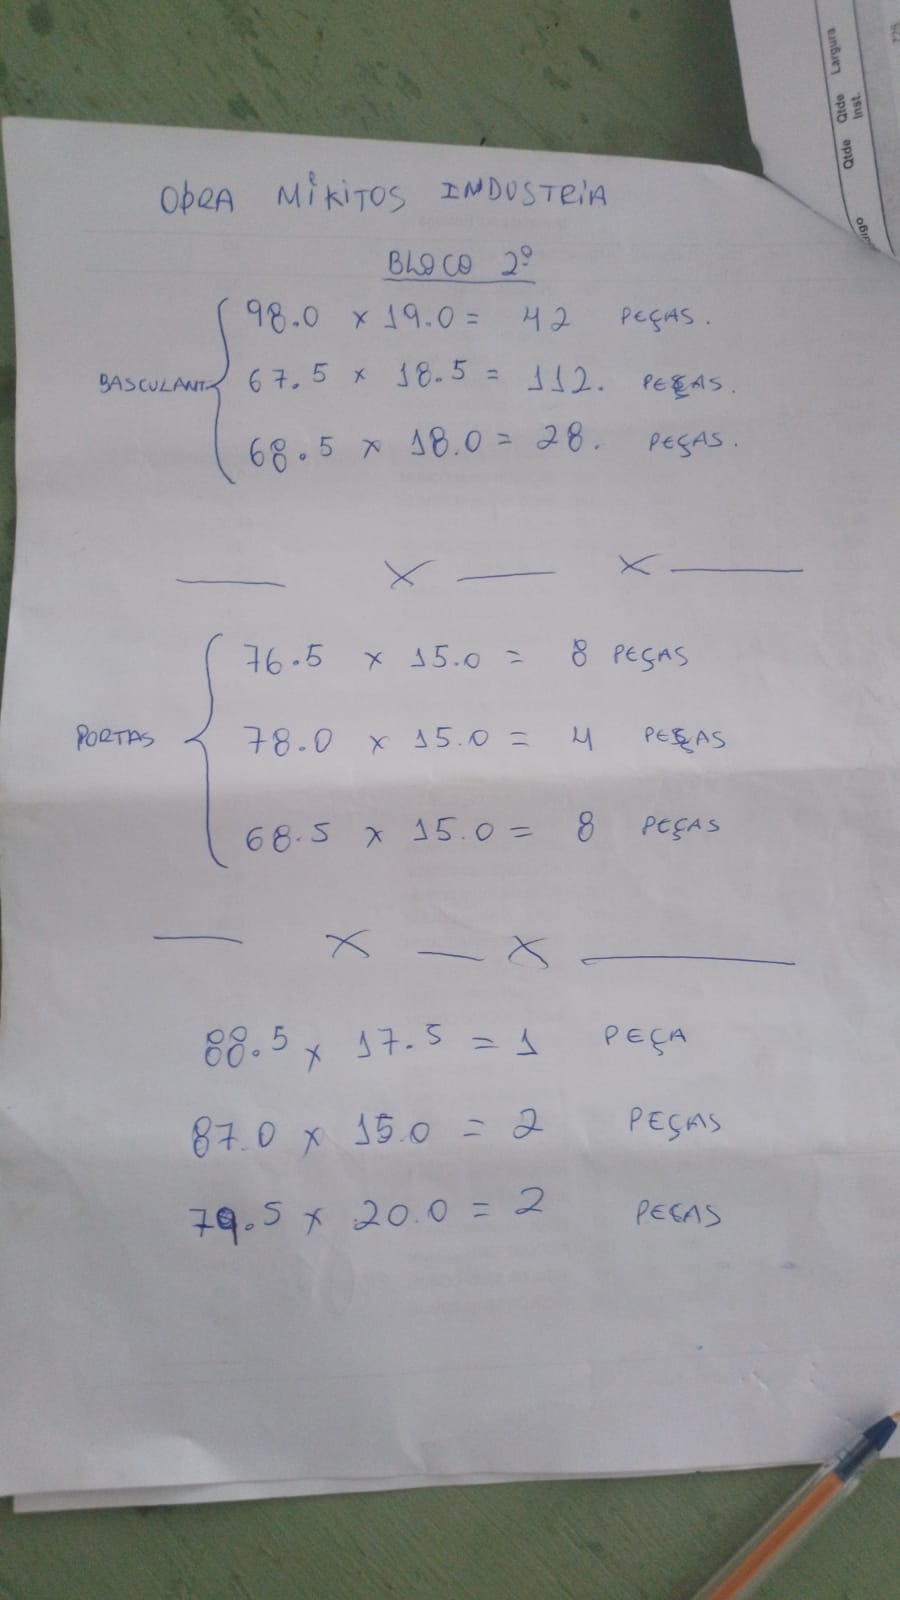 OBRA MIKITOS INDUSTRIA
BLOCO 2º
98.0 x 19.0 = 42 PEÇAS.
BASCULANT 67.5 x 18.5 = 112. PEÇAS.
68.5 x 18.0 = 28. PEÇAS.
— X — X —
76.5 x 15.0 = 8 PEÇAS
PORTAS 78.0 x 15.0 = 4 PEÇAS
68.5 x 15.0 = 8 PEÇAS
— X — X —
88.5 x 17.5 = 1 PEÇA
87.0 x 15.0 = 2 PEÇAS
79.5 x 20.0 = 2 PEÇAS
Qtde Qtde Largura
Inst.